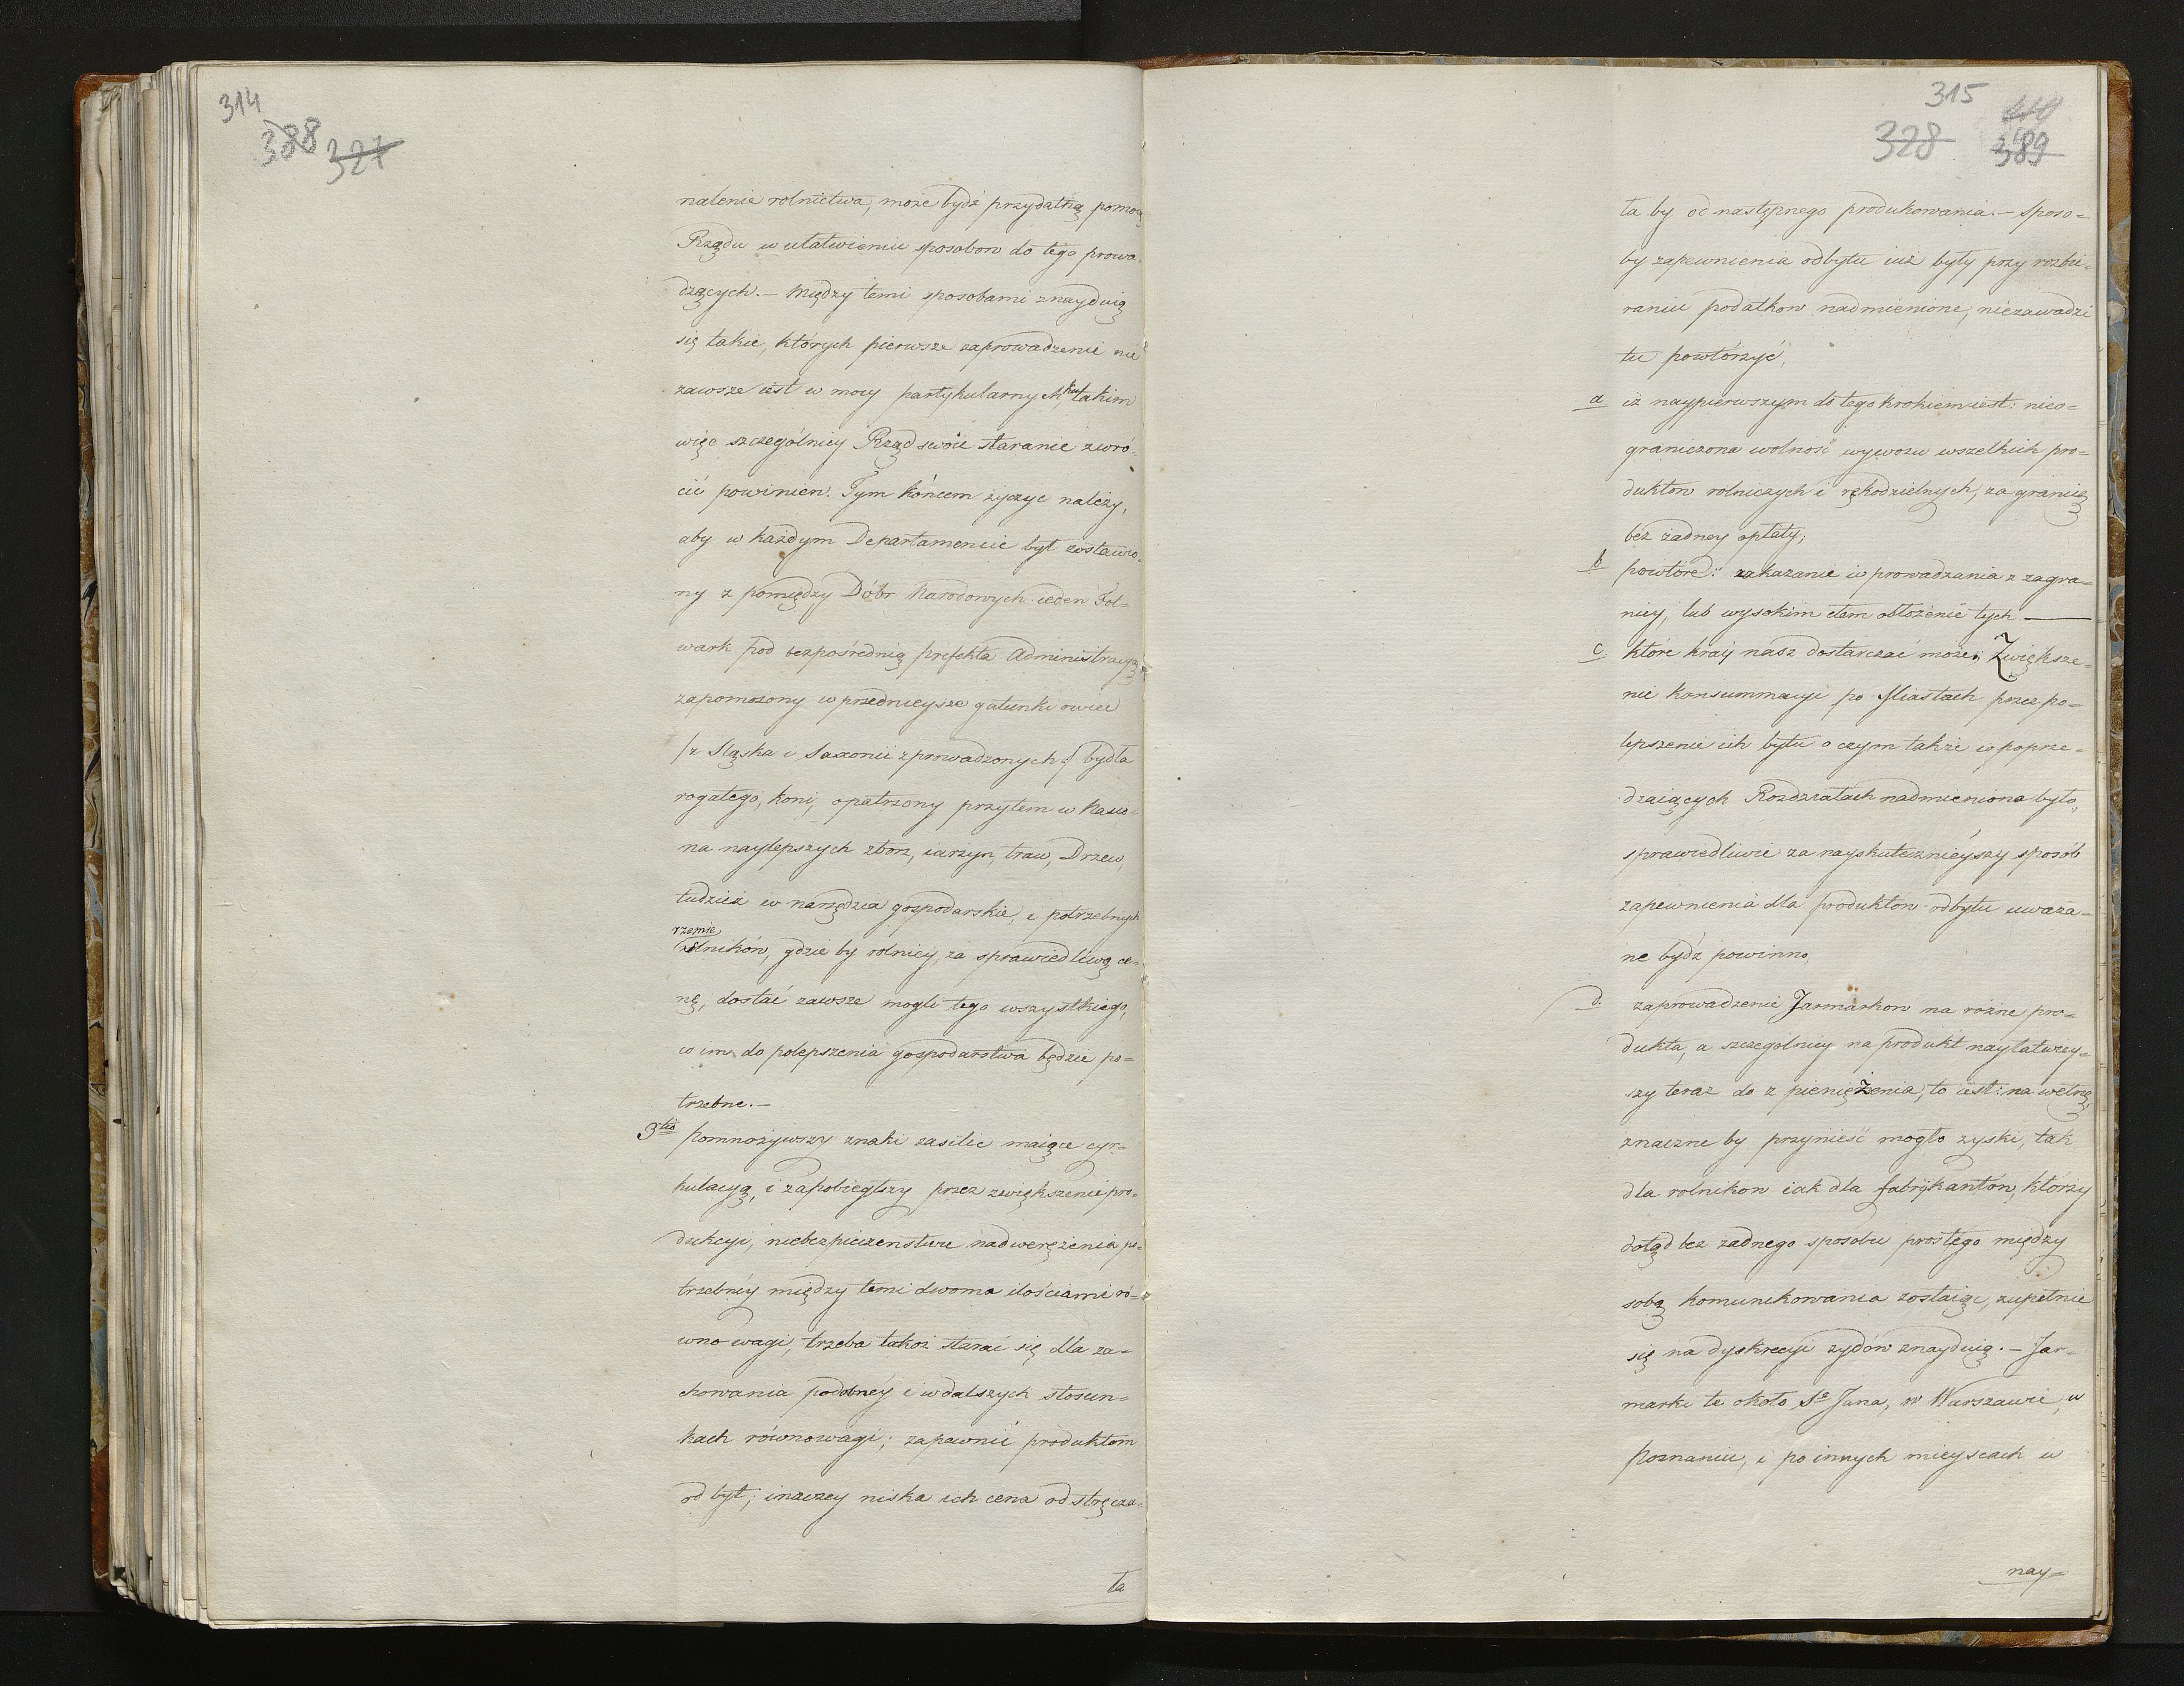 314
388 327
nalenie rolnictwa, może bydź przydatną pomocą
Rządu w ułatwieniu sposobow do tego prowa-
dzących. – Między temi sposobami znayduią
się takie, których pierwsze zaprowadzenie nie
zawsze iest w mocy partykularnych, ku takim
więc szczególniey Rząd swóie staranie zwró-
cić powinien. Tym końcem życzyc należy,
aby w każdym Departamencie był zostawio-
ny z pomiędzy Dóbr Narodowych ieden Fol=
wark pod bezpośrednią prefekta Administracyą
zapomożony w przednieysze gatunki owiec
/z Sląska i Saxonii zprowadzonych:/ bydła
rogatego, koni, opatrzony przytem w Nasio-
na naylepszych zboz, iarzyn, traw, Drzew,
tudzież w narzędzia gospodarskie, i potrzebnych
rzemie
slników, gdzie by rolnicy, za sprawiedliwą ce-
nę, dostać zawsze mogli tego wszystkiego,
co im do polepszenia gospodarstwa będzie po=
trzebne. –
3tio Pomnożywszy znaki zasilic maiące cyr=
kulacyą, i zapobiegłszy przez zwiększenie pro-
dukcyi, niebezpieczenstwu nadwerężenia po-
trzebnéy między temi dwoma ilościami ró-
wno wagi, trzeba takoż starać się dla za=
chowania podobnéy i w dalszych stosun=
kach równowági; zapewnić produktom
od byt; inaczey niska ich cena odstręcza=
ła
315
328 389
ła by od następnego produkowania. – Sposo=
by zapewnienia odbytu iuż były przy rozbie-
raniu podatkow nadmienione, niezawadzi
tu powtórzyć,
a iż naypierwszym do tego krokiem iest: nieo=
graniczona wolność wywozu wszelkich pro=
duktow rolniczych i rękodzielnych, za granicę
bez żadney opłaty;
b powtore: zakazanie wprowadzania z zagra=
nicy, lub wysokim cłem obłożenie tych —
c. które kráy nasz dostarczać może; Zwiększe=
nie konsummacyi po Miastach przez po=
lepszenie ich bytu o czym także w poprze=
dzaiących Rozdziałach nadmieniono było,
sprawiedliwie za nayskutecznieyszy sposób
zapewnienia dla produktow odbytu uważa=
ne bydź powinno,
d. zaprowadzenie Jarmarkow na różne pro=
dukta, a szczegolniey na produkt nayłatwiey=
szy teraz do z pieniężenia, to iest: na wełnę
znaczne by przynieść mogło zyski, tak
dla rolnikow iak dla fabrykantów, którzy
dotąd bez żadnego sposobu prostégo między
sobą komunikowania zostaiąc, zupełnie
się na dyskrecyi żydów znayduią. – Jar-
marki te około Sgo Jana, w Warszawie, w
Poznaniu, i po innych mieyscach w
nay=